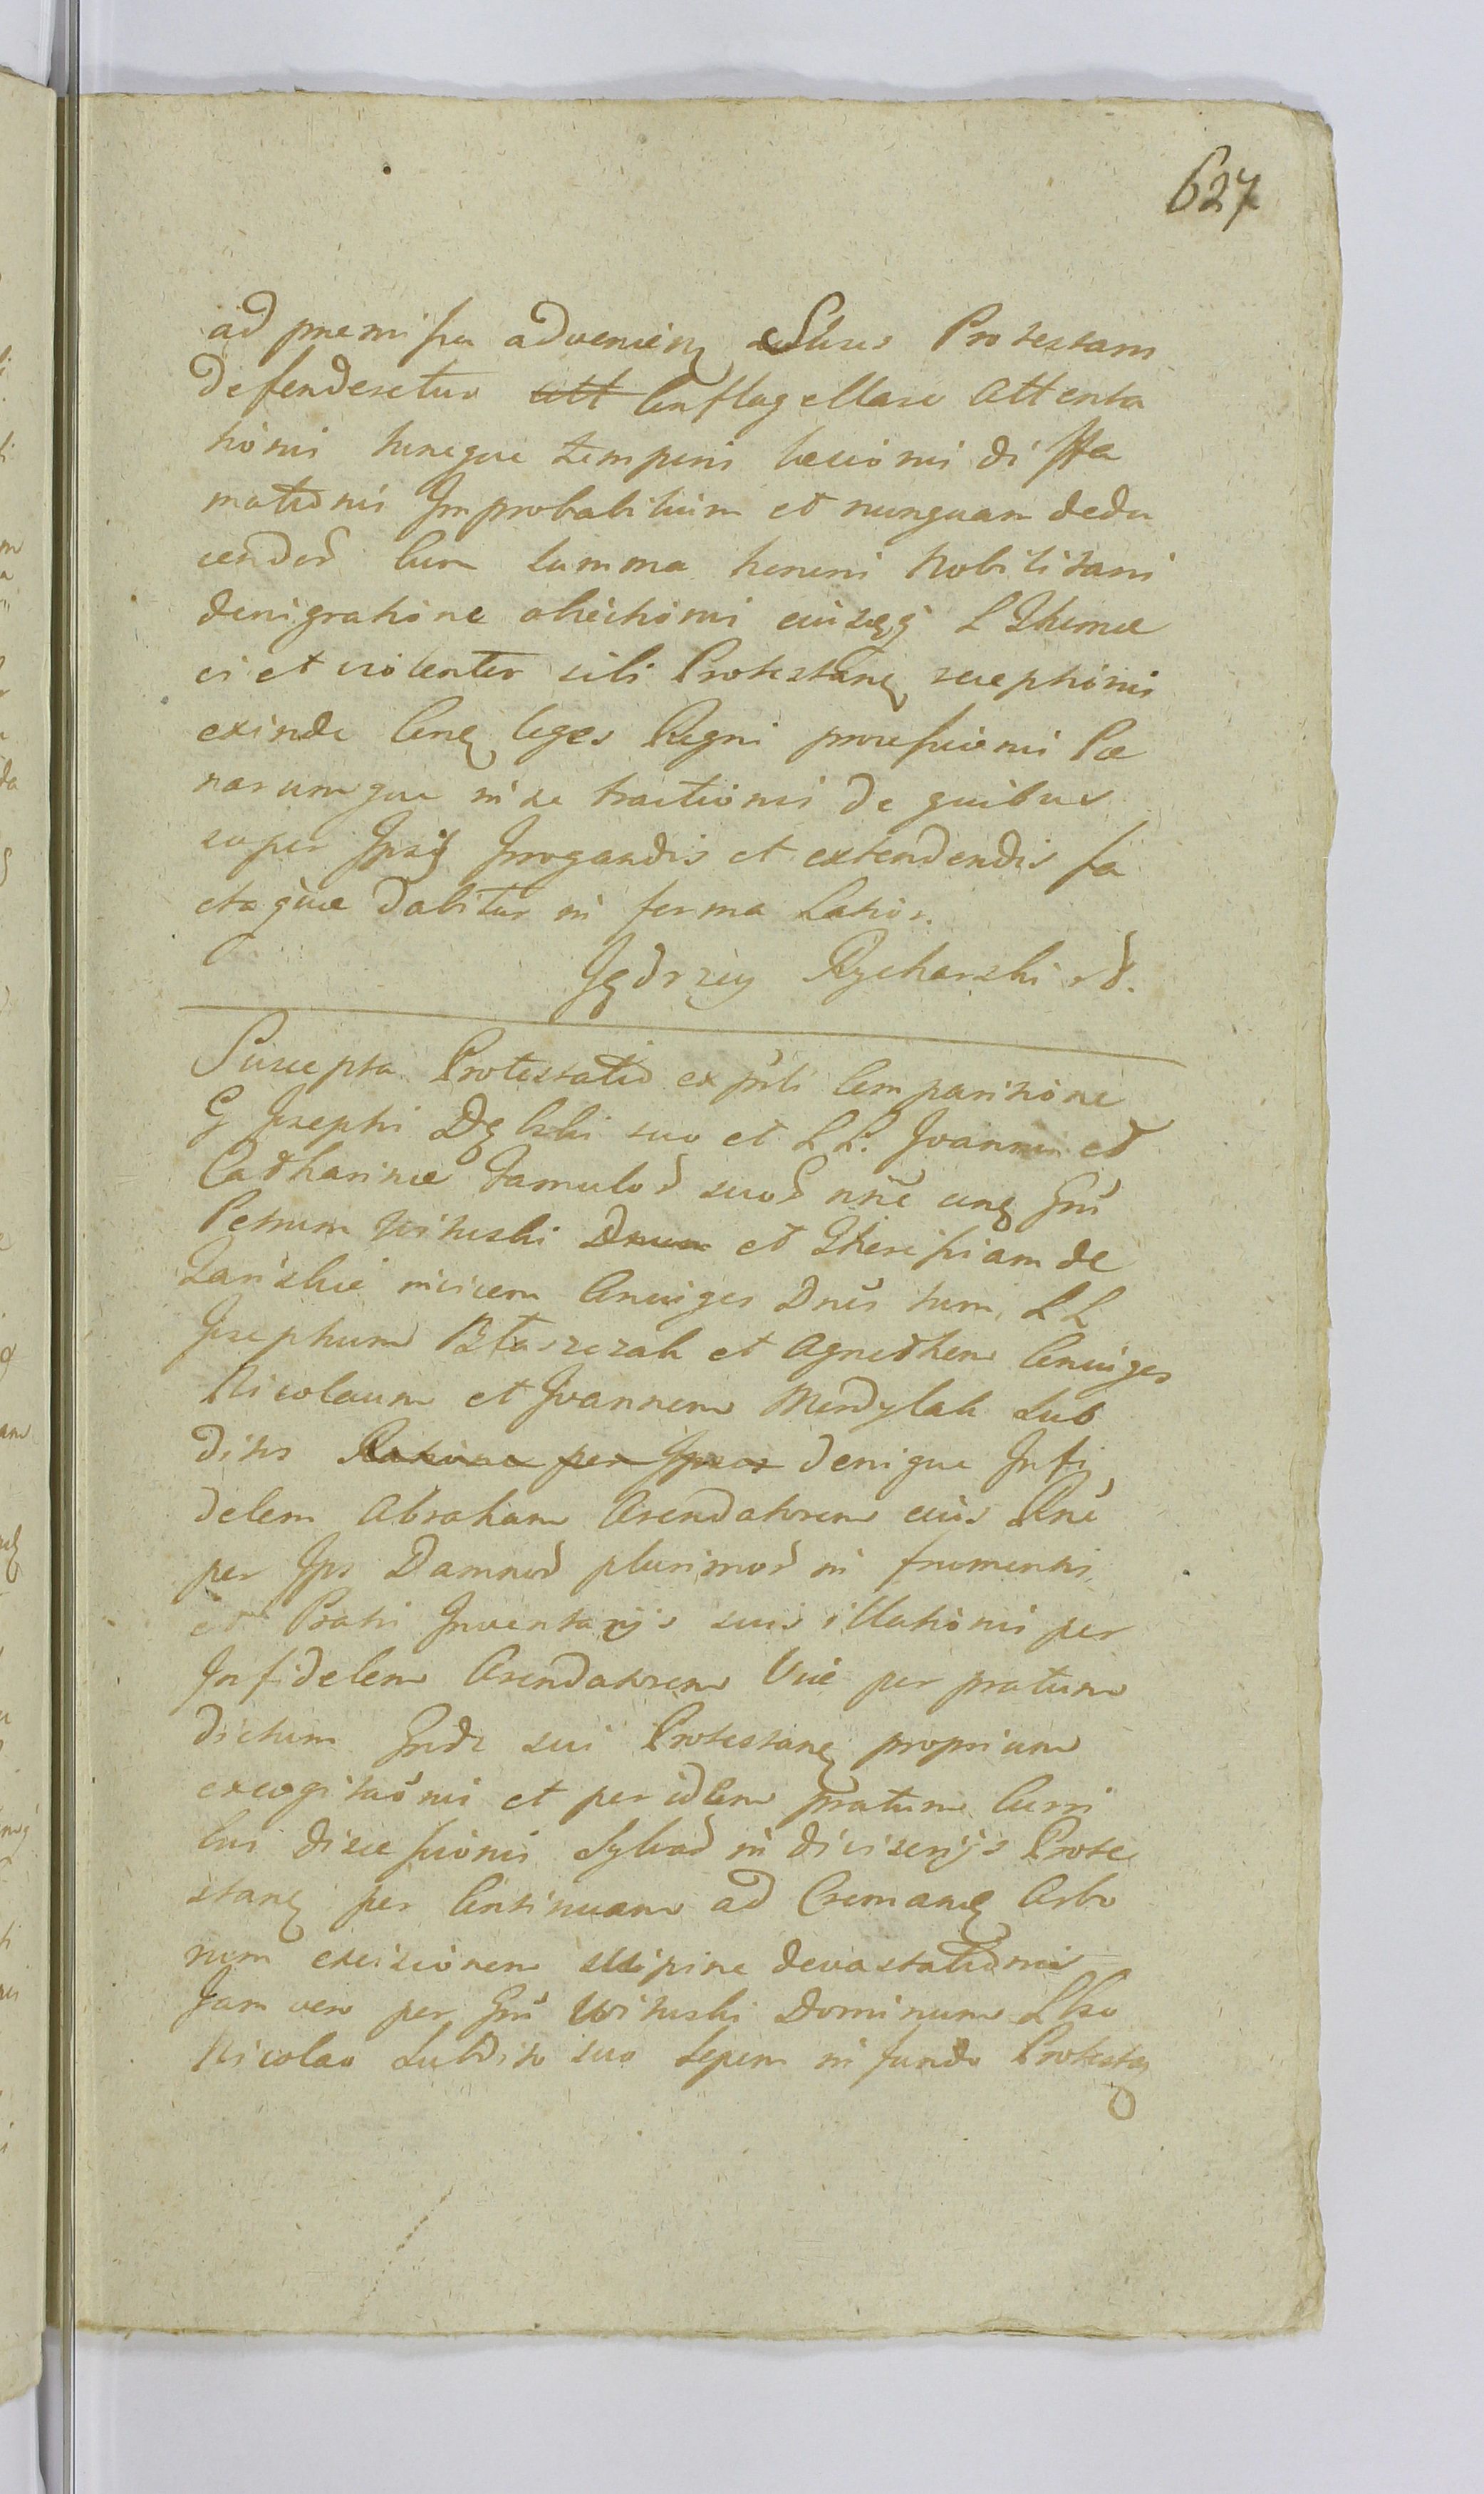 627
ad premissa advenien Soluus Protestans
defenderetur att Conflagellare attenta
tionis hineque temperis læsionis diffa
mationis Improbabilium et nunquam dedu
cendor Cum summa honeris Nobilitaris
denigratione obiectionis eiusq L Thomæ
ei et violenter sibi Protestan receptionis
exinde Con leges Regni processionis Pæ
narumque in se tractionis de quibus
super Ipsis Irrogandis et extendendis fa
ctaque dabitur in forma Latior.
Jędrzey Rycharski rd.
Suscepta Protestatio ex psti Comparitione
G Josephi Dębski suo et LL. Joannis et
Catharinæ famulor suor nne cun Gnu
Petrum Witwski Dnum et Theressiam de
Lanskie invicem Coniuges Dnos tum, LL
Josephum Błaszczak et Agnethem Coniuges
Nicolaum et Joannem Mendylak Sub
ditos Ratione per Ipsos denique Infi
delem Abraham Arendatorem eius Rne
per Ips Damnor plurimor in frumentis
et Pratis Inventarijs suis illationis per
Infidelem Arendatorem Viæ per pratum
dictum sui Protestan proprium
excogitaonis et per idem pratum Curri
bus discessionis Sylvar in divisorijs Prote
stan per Continuam ad Creman Arbo
rum excisionem devastationis
Jam vero per Gnu Witwski Dominum Lbso
Nicolao Subdito suo Sepem in fundo Protestan